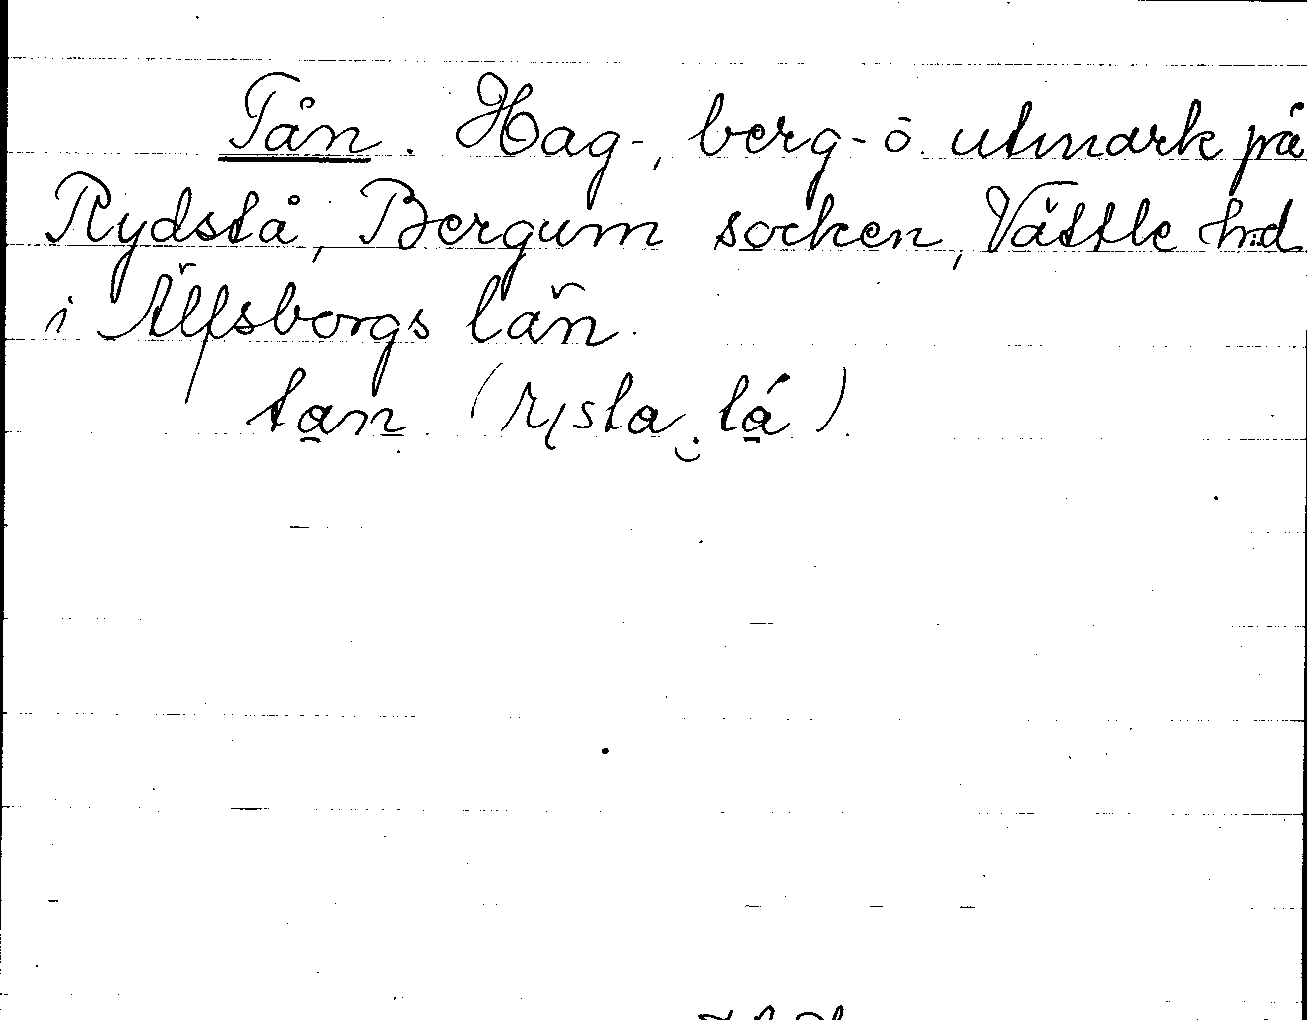 Tån. Hag-, berg- ō. utmark på
Rydstå, Bergum socken, Vättle h:d
i Älfsborgs län.
tan (rysta, tá)